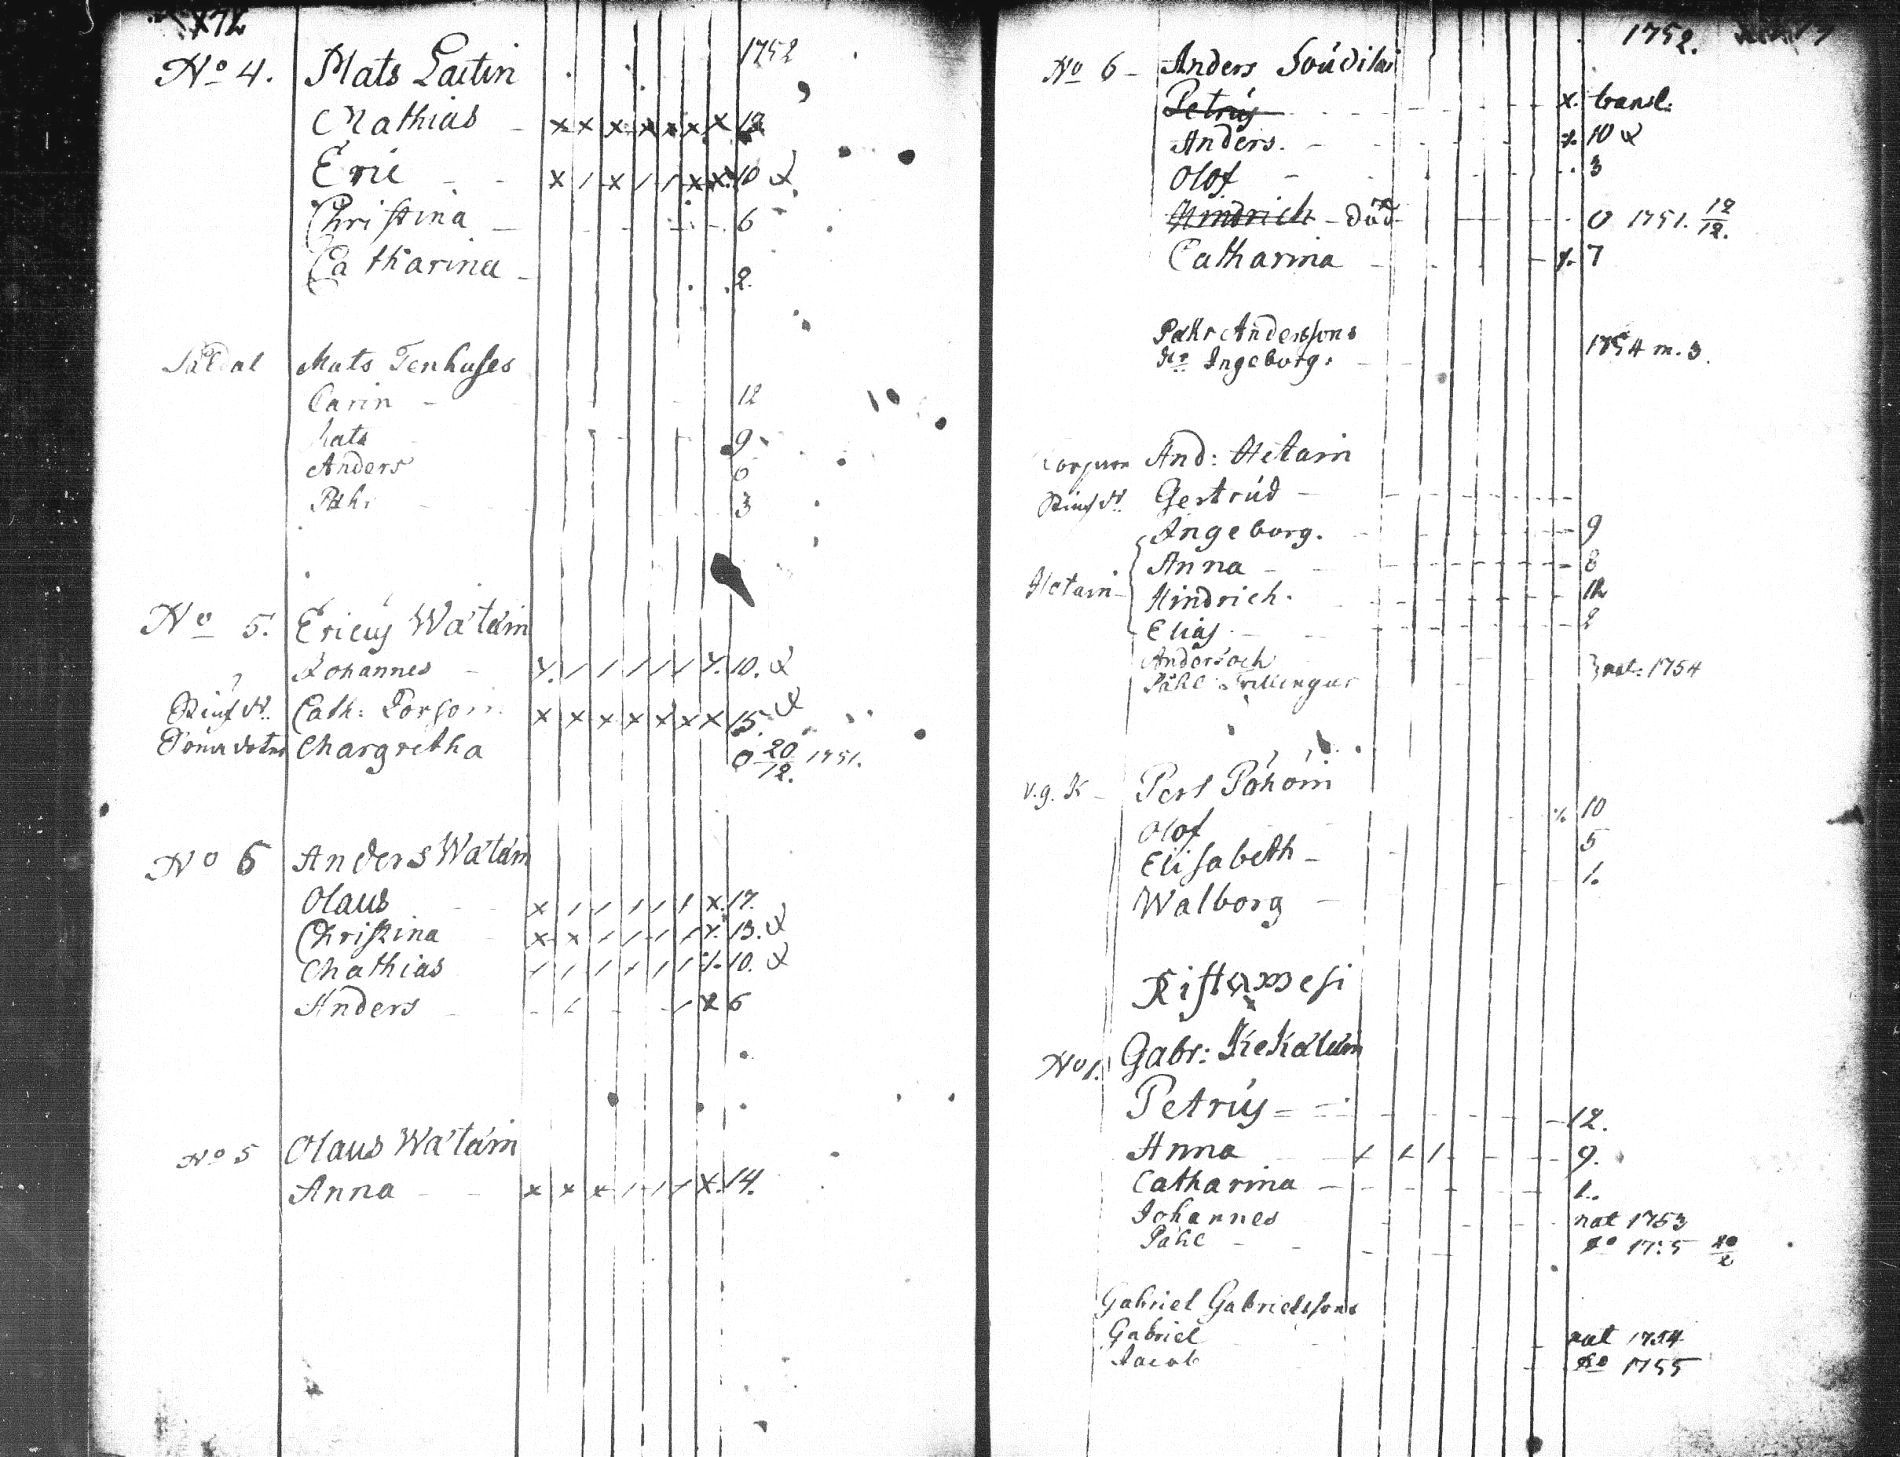 172
1752
No 4. Mats Laitin
Mathias - x x x x x x x 12
Eric - - x / x / / x x 10 X
Christina - 6
Catharina - 2.
Mats Tenhuses
Carin - 12
Mats 9
Anders 6
Påhr 3
No 5. Ericus Watain
Johannes - x / / / / / x. 10. X
Cath: x x x x x x x 15. X
Margretha 0 20/12. 1751.
No 6 Anders Watain
Olaus x / / / / / x. 17.
Christina x x / / / / x. 13. X
Mathias / / / / / / x. 10. X
Anders - - / - - / x 6
No 5 Olaus Watain
Anna - - x x x / / / x. 14.
1752.
No 6 - Anders
Petrus x. transl:
Anders. - x. 10 X
Olof - 3
Hindrich - död 0 1751. 12/12.
Catharina - x. 7
Påhr Anderssons
dr Ingeborg: 1754 m. 3.
And: Hetain
Gertrud -
Ingeborg. 9
Anna - 8
Hetain - Hindrich. 12
Elias - 2
Anders och
Påhl Trillingar nat: 1754
v.g. K - Pers Påhoin
Olof x 10
Elisabeth - 5
Walborg - 1.
Ristamesi
No 1. Gabr: Kekälain
Petrus - - 12.
Anna / / / 9.
Catharina - 1.
Johannes nat 1753
Påhl - do 1755 20/2
Gabriel Gabrielssons
Gabriel nat 1754
Jacob do 1755